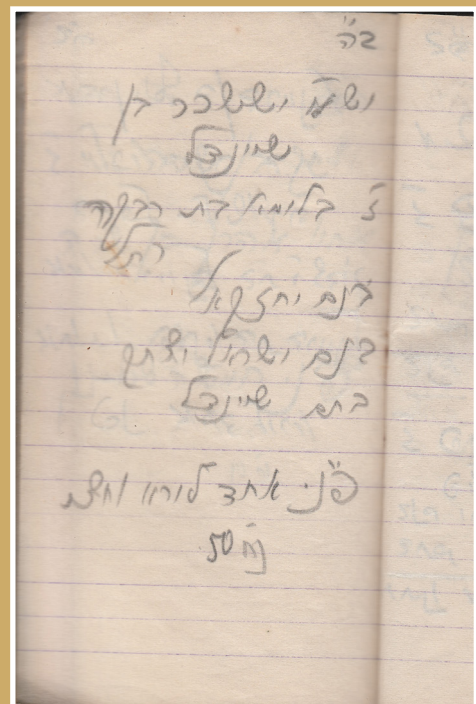 ב"ה
יששכר בן
שיינדל
ז' בלומא בת רבקה
רחל
בנם יחזקאל
בנם ישראל יצחק
בתם שיינדל
פ"נ אחד לורא וחצת
50